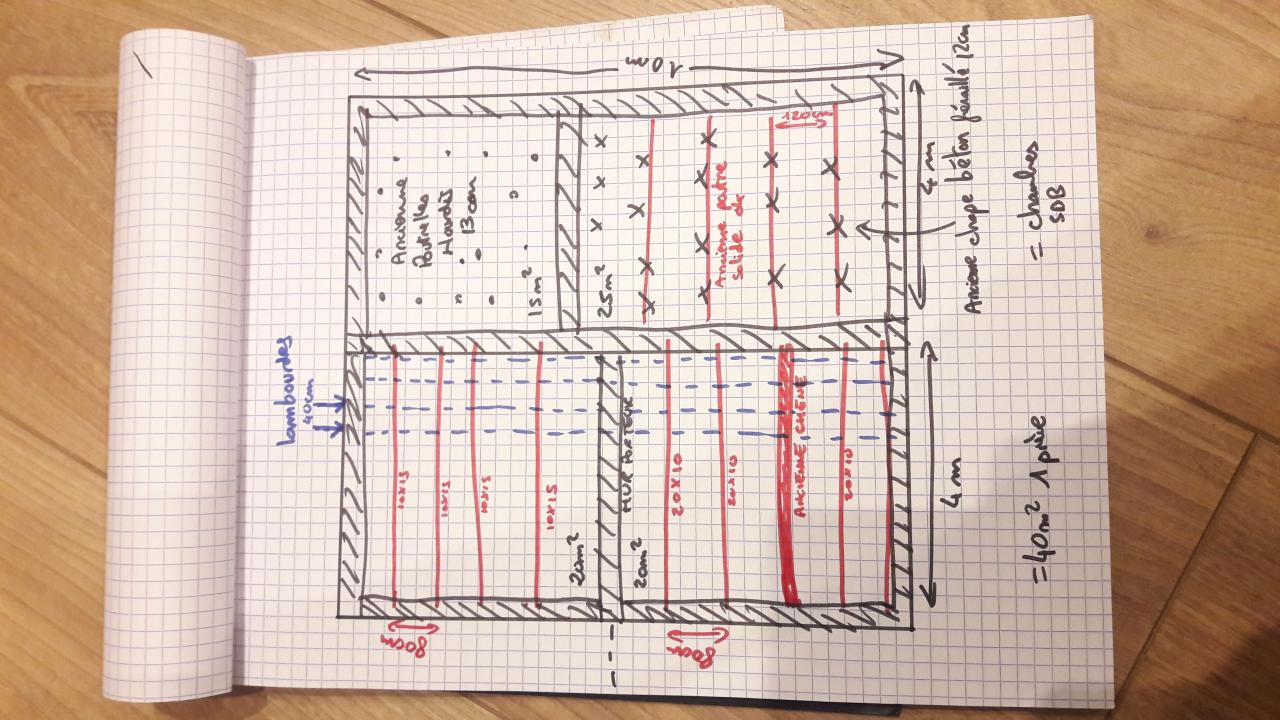 10m
lambourdes
40cm
Ancienne
Poutrelles
Hourdis
13cm
15m²
25m²
120cm
Ancienne poutre
solide dc
4m
Ancienne chape béton 12cm
= chambres
SDB
10x15
10x15
10x15
10x15
20m²
MUR PORTEUR
20m²
20x10
20x10
ANCIENNE CHÊNE
20x10
80cm
80cm
4m
=40m² 1 pièce